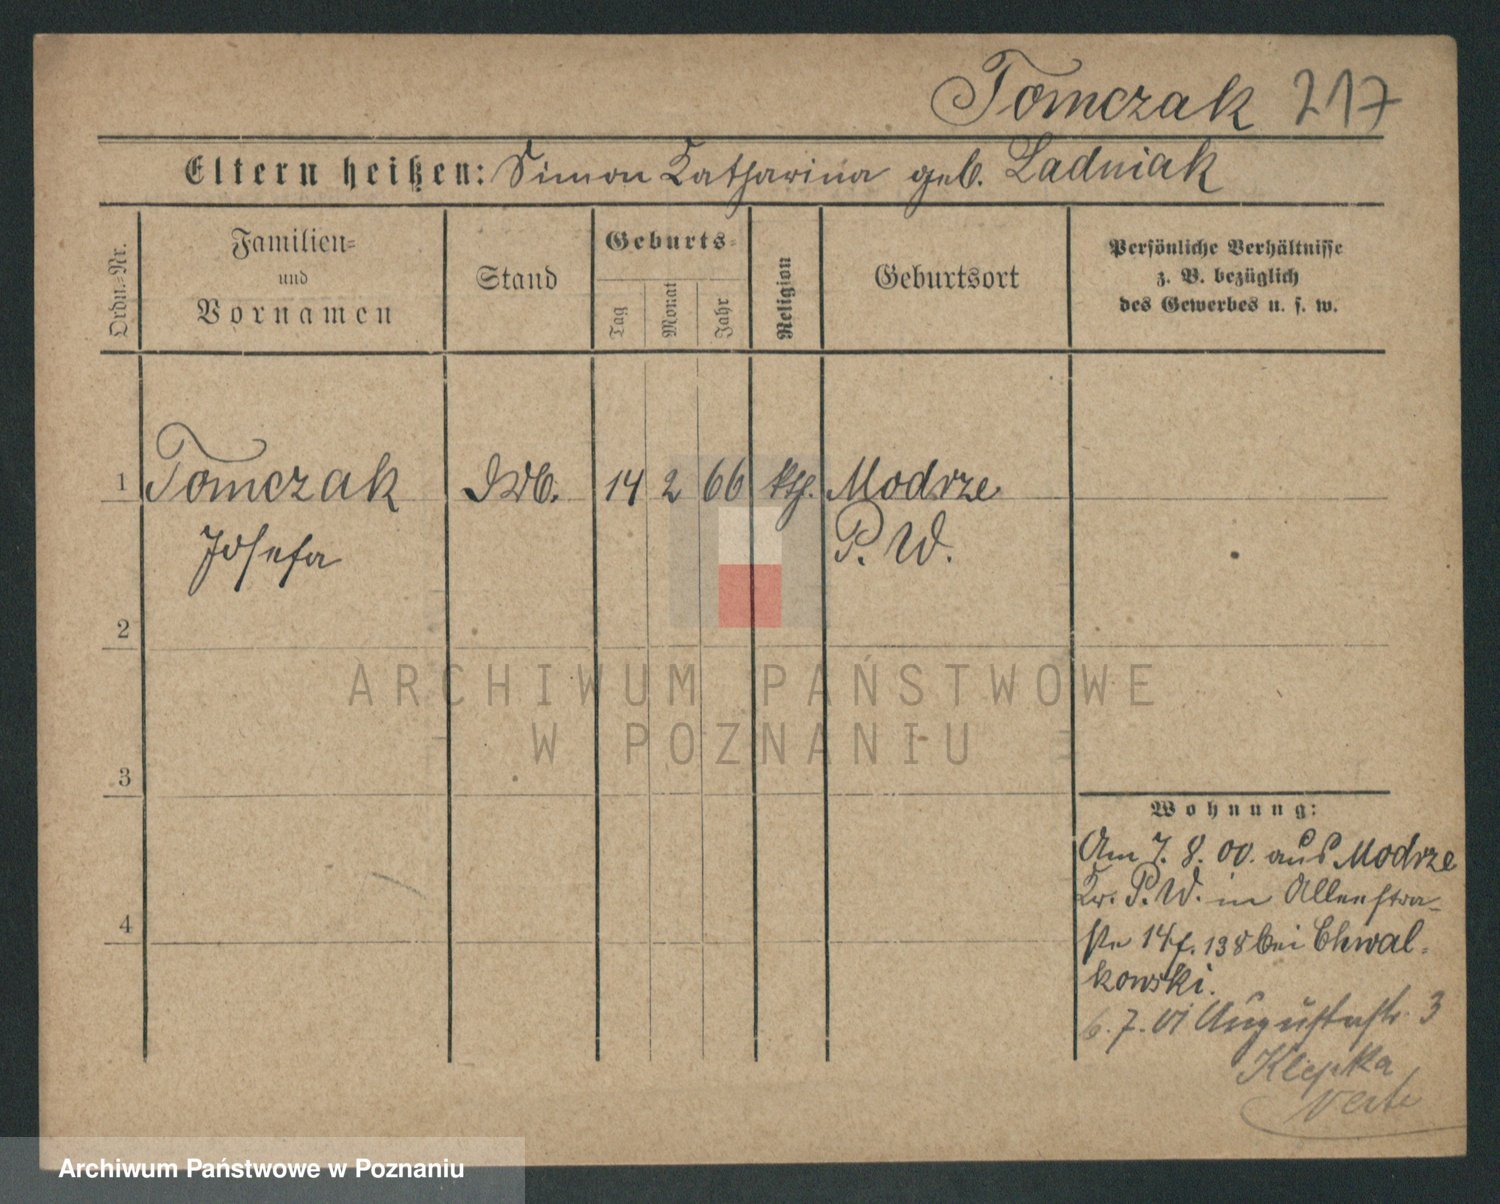 Tomczak 217
Eltern heißen: Simon Katharina geb. Ladniak
Ordn.-Nr.
Familien-
und
Vornamen
Stand
Geburts-
Tag
Monat
Jahr
Religion
Geburtsort
Persönliche Verhältnisse
z. B. bezüglich
des Gewerbes u. s. w.
1 Tomczak 14 2 66 kth. Modrze
Josefa P. W.
2
3
4
Wohnung:
Am 7. 8. 00. aus Modrze
Kr. P. W. in Allee stra-
ße 14 f. 138 bei Chwal-
kowski.
6. 7. 01 Augustastr. 3
Klepka
verte
ARCHIWUM PAŃSTWOWE
W POZNANIU
Archiwum Państwowe w Poznaniu